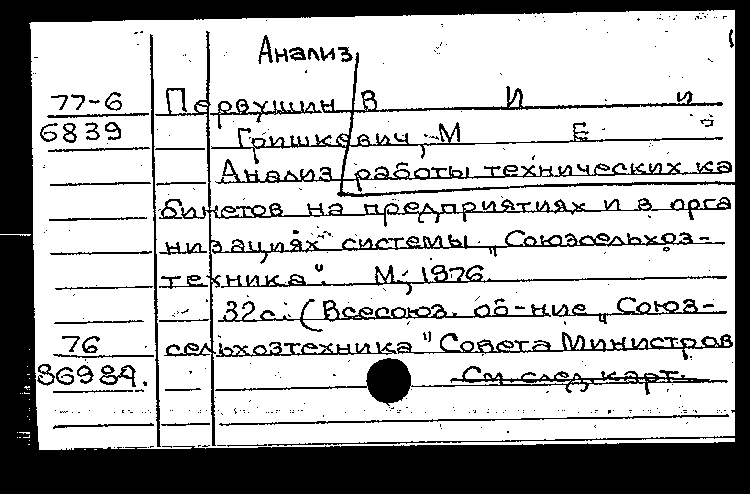 Анализ
77-6 Первушин В И и
6839 Гришкевич, М Е
Анализ работы технических ка
бинетов на предприятиях и в орга
низациях системы „Союзсельхоз-
техника". М., 1976.
32с. (Всесоюз. об-ние „Союз-
76 сельхозтехника" Совета Министров
86984. См. след. карт.